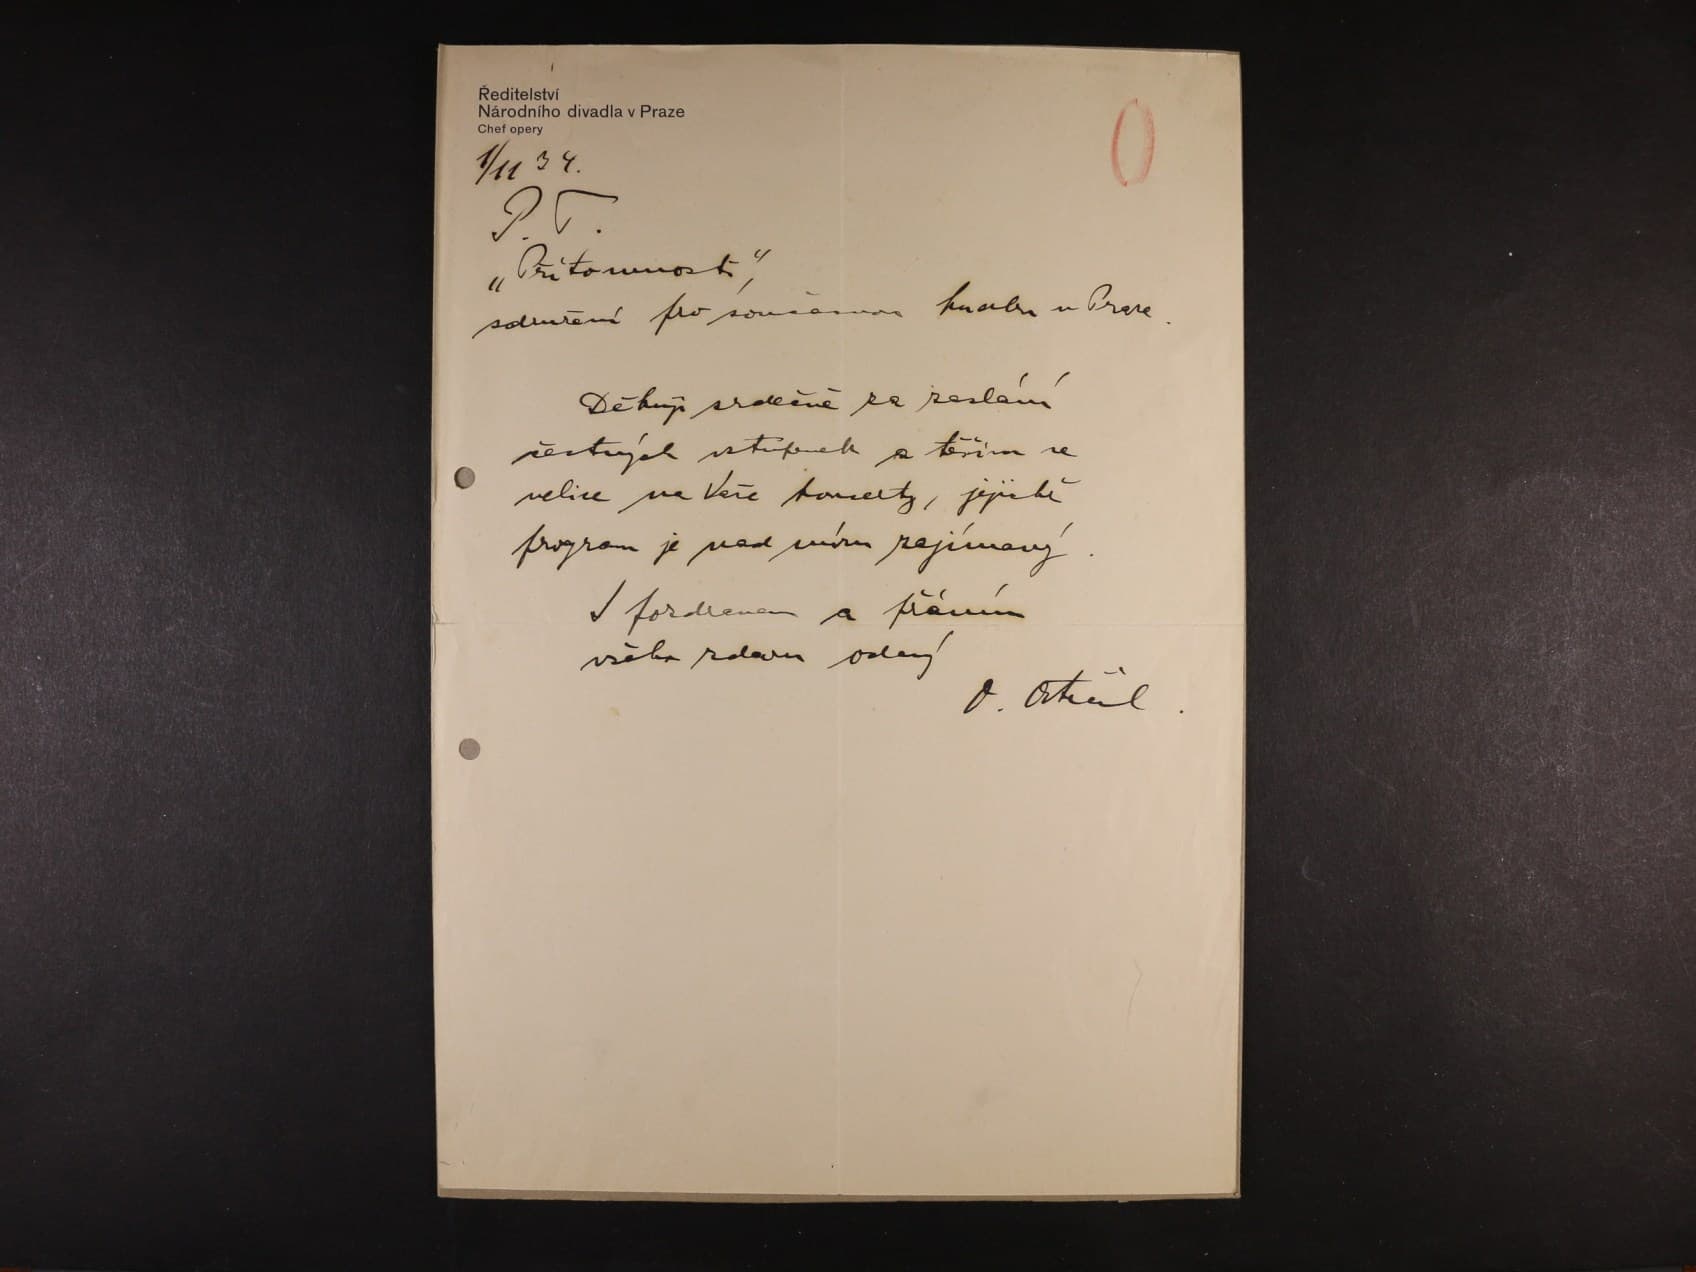 Ředitelství
Národního divadla v Praze
Chef opery
1/11 34.
P. T.
„Přítomnost“,
sdružení pro současnou hudbu v Praze.
Děkuji srdečně za zaslání
čestných vstupenek a těším se
velice na Vaše koncerty, jejichž
program je nad míru zajímavý.
S pozdravem a přáním
všeho zdaru oddaný
O. Ostrčil.